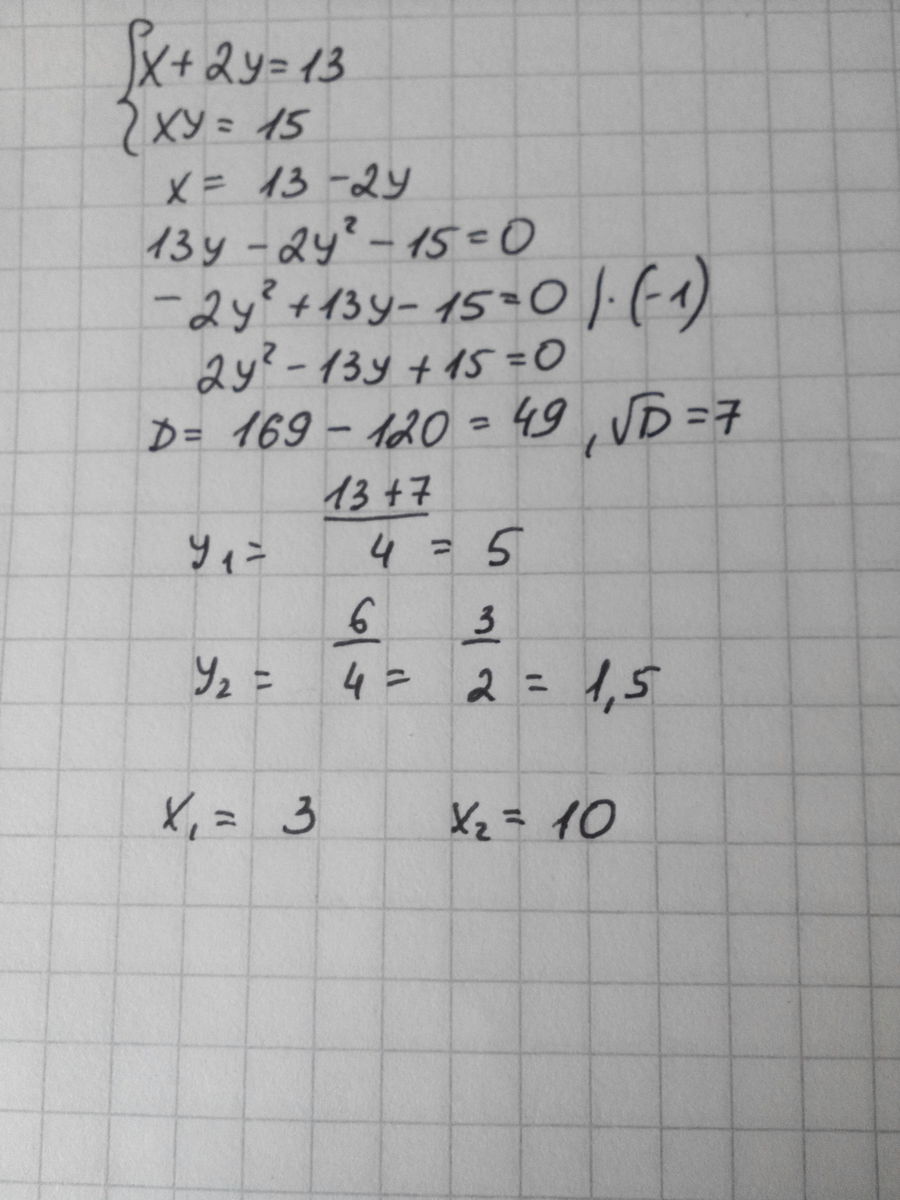 {x + 2y = 13
xy = 15
x = 13 - 2y
13y - 2y² - 15 = 0
- 2y² + 13y - 15 = 0 |·(-1)
2y² - 13y + 15 = 0
D = 169 - 120 = 49, √D = 7
y₁ = (13 + 7)/4 = 5
y₂ = 6/4 = 3/2 = 1,5
x₁ = 3 x₂ = 10